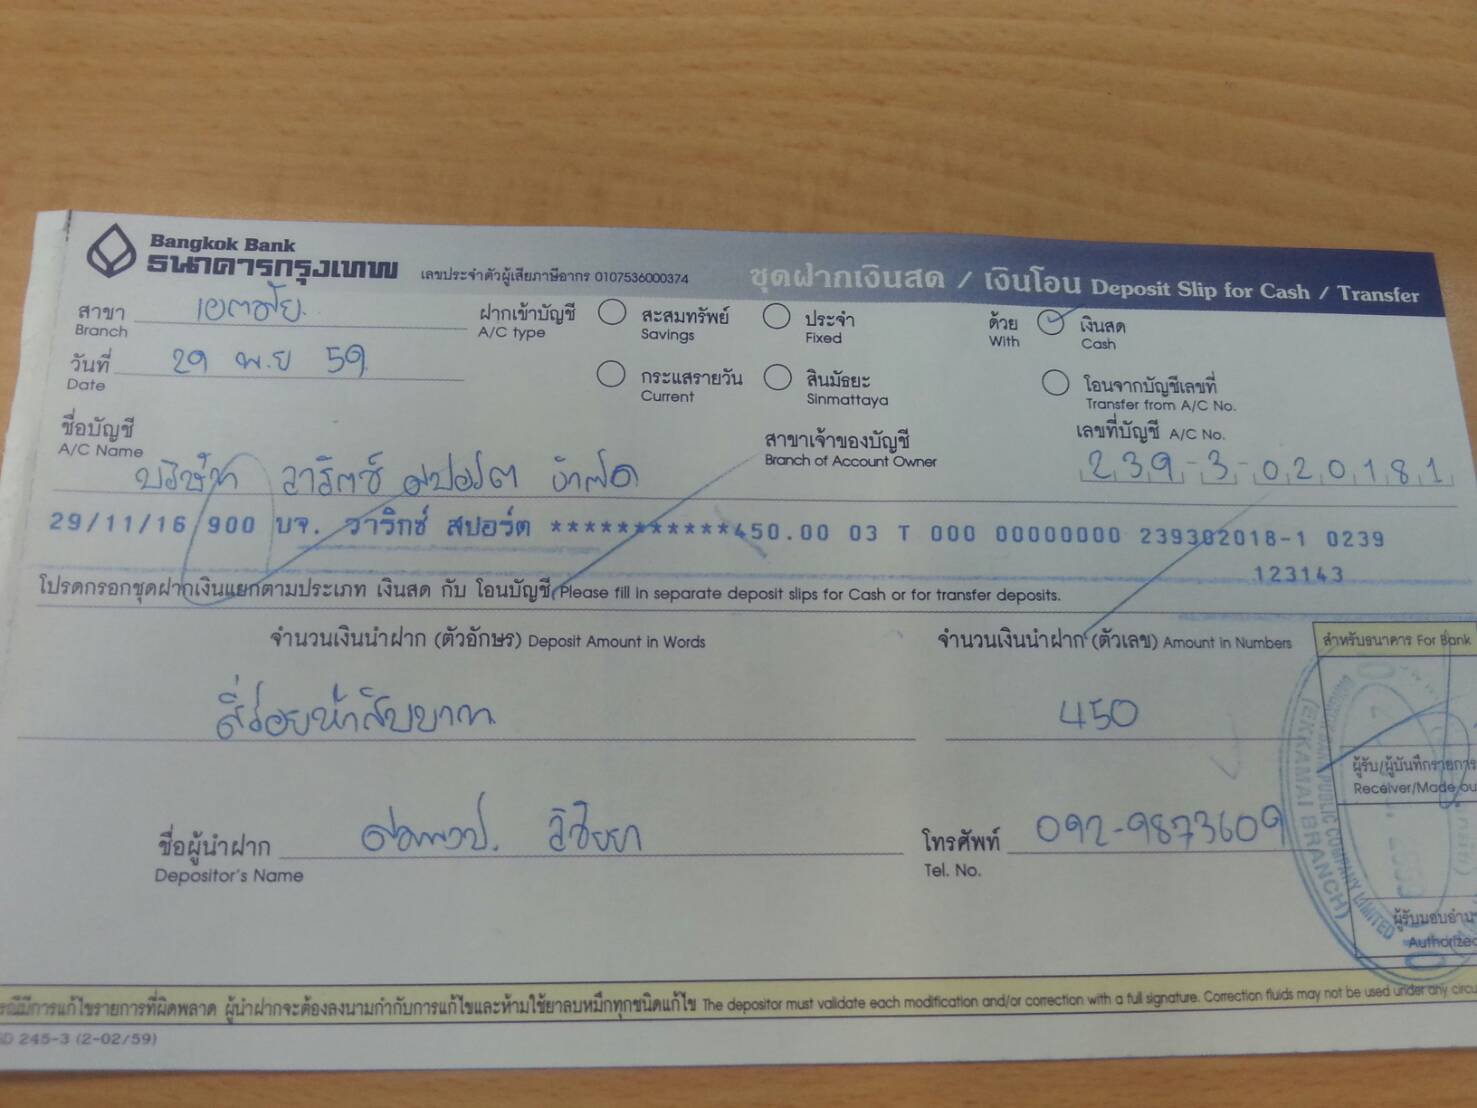 Bangkok Bank
ธนาคารกรุงเทพ
เลขประจำตัวผู้เสียภาษีอากร 0107536000374
ชุดฝากเงินสด / เงินโอน Deposit Slip for Cash / Transfer
สาขา เอกมัย
Branch
ฝากเข้าบัญชี
A/C type
สะสมทรัพย์
Savings
ประจำ
Fixed
ด้วย
With
เงินสด
Cash
วันที่ 29 พ.ย 59
Date
กระแสรายวัน
Current
สินมัธยะ
Sinmattaya
โอนจากบัญชีเลขที่
Transfer from A/C No.
ชื่อบัญชี
A/C Name
บริษัท วาริกซ์ สปอร์ต จำกัด
สาขาเจ้าของบัญชี
Branch of Account Owner
เลขที่บัญชี A/C No.
239-3-020181
29/11/16 900 บจ. วาริกซ์ สปอร์ต ***********450.00 03 T 000 00000000 239302018-1 0239
123143
โปรดกรอกชุดฝากเงินแยกตามประเภท เงินสด กับ โอนบัญชี Please fill in separate deposit slips for Cash or for transfer deposits.
จำนวนเงินนำฝาก (ตัวอักษร) Deposit Amount in Words
จำนวนเงินนำฝาก (ตัวเลข) Amount in Numbers
สำหรับธนาคาร For Bank
สี่ร้อยห้าสิบบาท
450
ผู้รับ/ผู้บันทึกรายการ
Receiver/Made
ชื่อผู้นำฝาก
Depositor's Name
โทรศัพท์ 092-9873609
Tel. No.
PUBLIC COMPANY LIMITED
(EKKAMAI BRANCH)
ผู้รับมอบอำนา
Authorized
รณีมีการแก้ไขรายการที่ผิดพลาด ผู้นำฝากจะต้องลงนามกำกับการแก้ไขและห้ามใช้ยาลบหมึกทุกชนิดแก้ไข The depositor must validate each modification and/or correction with a full signature. Correction fluids may not be used under any
245-3 (2-02/59)